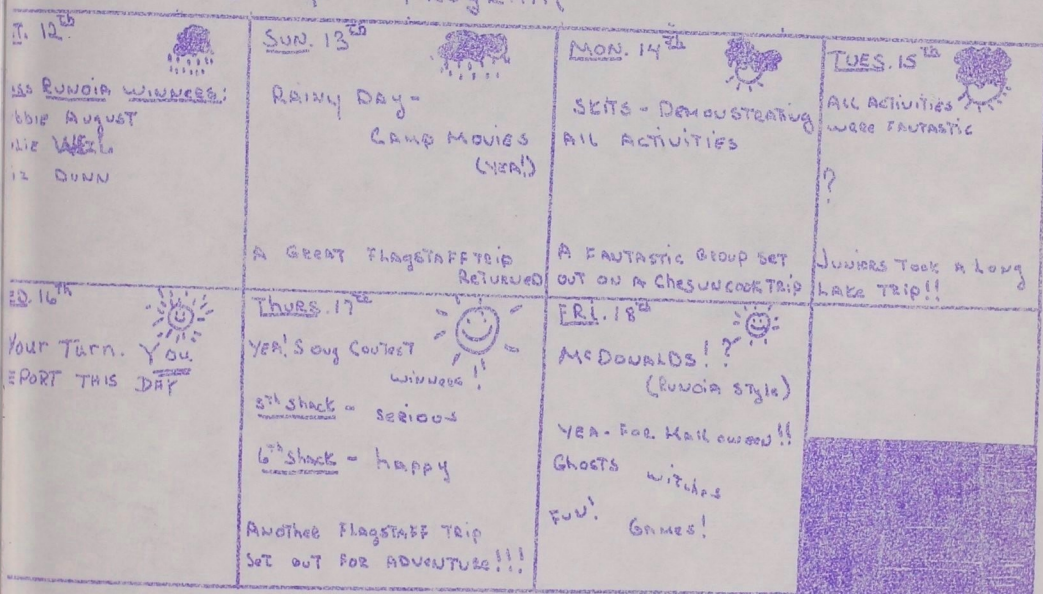 T. 12th
ISS RUNOIA WINNERS:
bbie August
LIE WEIL
IZ DUNN
SUN. 13th
RAINY DAY-
CAMP MOVIES
(YEA!)
A GREAT FLAGSTAFF TRIP
RETURNED
MON. 14th
SKITS - DEMONSTRATING
All ACTIVITIES
A FANTASTIC GROUP SET
OUT ON A CHESUNCOOK TRIP
TUES. 15th
All ACTIVITIES
WERE FANTASTIC
?
JUNIERS TOOK A LONG
LAKE TRIP!!
ED. 16th
Your Turn. You
EPORT THIS DAY
THURS. 17th
YEA! SONG CONTEST
WINNERS!!
5th Shack - SERIOUS
6th Shack - happy
ANOTHER FLAGSTAFF TRIP
SET OUT FOR ADVENTURE!!!
FRI. 18th
McDONALDS!?
(RUNOIA STYLE)
YEA- FOR HALLOWEEN!!
GHOSTS
WITCHES
FUN!
GAMES!